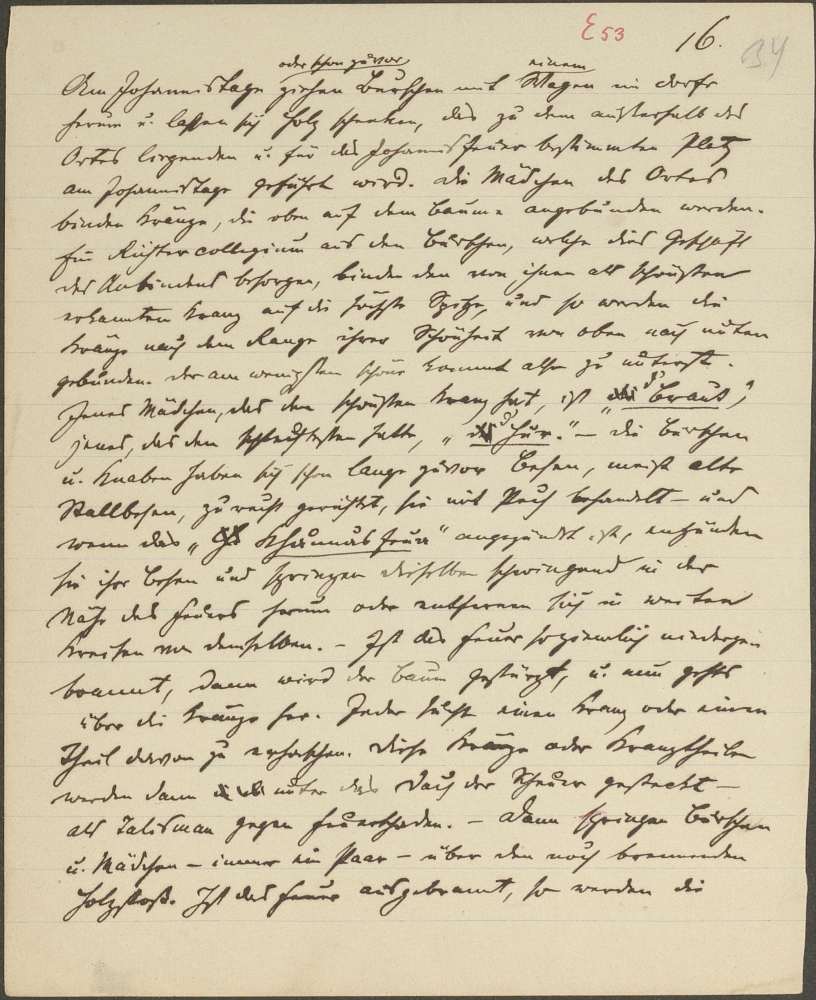 E 53
16.
34
oder schon zuvor einem
Am Johannistage ziehen Burschen mit Wagen im Dorfe
herum u. lassen sich Holz schenken, das zu dem außerhalb des
Ortes liegenden u. für das Johannisfeuer bestimmten Platz
am Johannistage geführt wird. Die Mädchen des Ortes
binden Kränze, die oben auf dem Baume angebunden werden.
Ein Richtercollegium aus den Burschen, welche dies Geschäft
des Anbindens besorgen, binden den von ihnen als schönsten
erkannten Kranz auf die höchste Spitze, und so werden die
Kränze nach dem Range ihrer Schönheit von oben nach unten
gebunden. Der am wenigsten schöne kommt also zu unterst.
Jenes Mädchen, das den schönsten Kranz hat, ist "d' Braut",
jenes, das den schlechtesten hatte, "d' Hur." – Die Burschen
u. Knaben haben sich schon lange zuvor Besen, meist alte
Stallbesen, zurecht gerichtet, sie mit Pech behandelt – und
wenn das " Khannasfeua" angezündet ist, entzünden
sie ihre Besen und springen dieselben schwingend in der
Nähe des Feuers herum oder entfernen sich in weiten
Kreisen von demselben. – Ist das Feuer so ziemlich niederge-
brannt, dann wird der Baum gestürzt, u. nun gehts
über die Kränze her. Jeder sucht einen Kranz oder einen
Theil davon zu erhaschen. Diese Kränze oder Kranztheile
werden dann unter das Dach der Scheuer gesteckt –
als Talisman gegen Feuerschaden. – Dann springen Burschen
u. Mädchen – immer ein Paar – über den noch brennenden
Holzstoß. Ist das Feuer ausgebrannt, so werden die